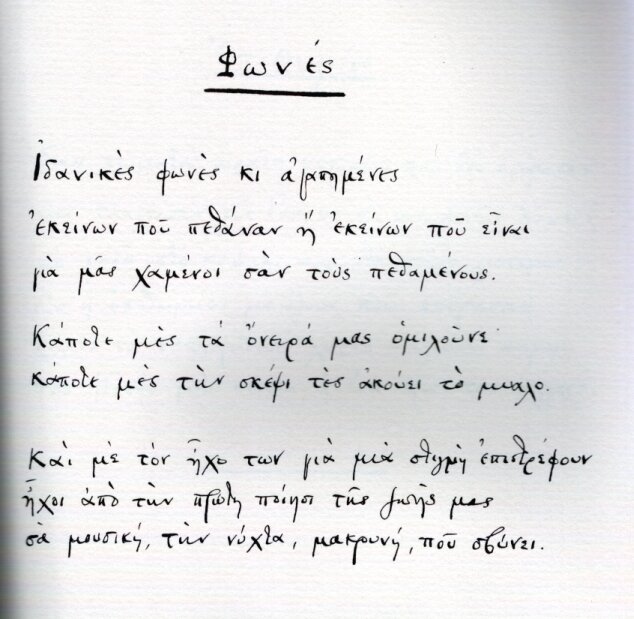 Φωνές
Ἰδανικὲς φωνὲς κι ἀγαπημένες
ἐκείνων ποῦ πεθάναν ἤ ἐκείνων ποῦ εἶναι
γιὰ μᾶς χαμένοι σὰν τοὺς πεθαμένους.
Κάποτε μὲς τὰ ὄνειρά μας ὁμιλοῦνε·
κάποτε μὲς τὴν σκέψι τὲς ἀκούει τὸ μυαλο.
Καὶ μὲ τὸν ἦχο των γιὰ μιὰ στιγμὴ ἐπιστρέφουν
ἦχοι ἀπὸ τὴν πρώτη ποίησι τῆς ζωῆς μας
σὰ μουσικὴ, τὴν νύχτα, μακρυνή, ποῦ σβύνει.